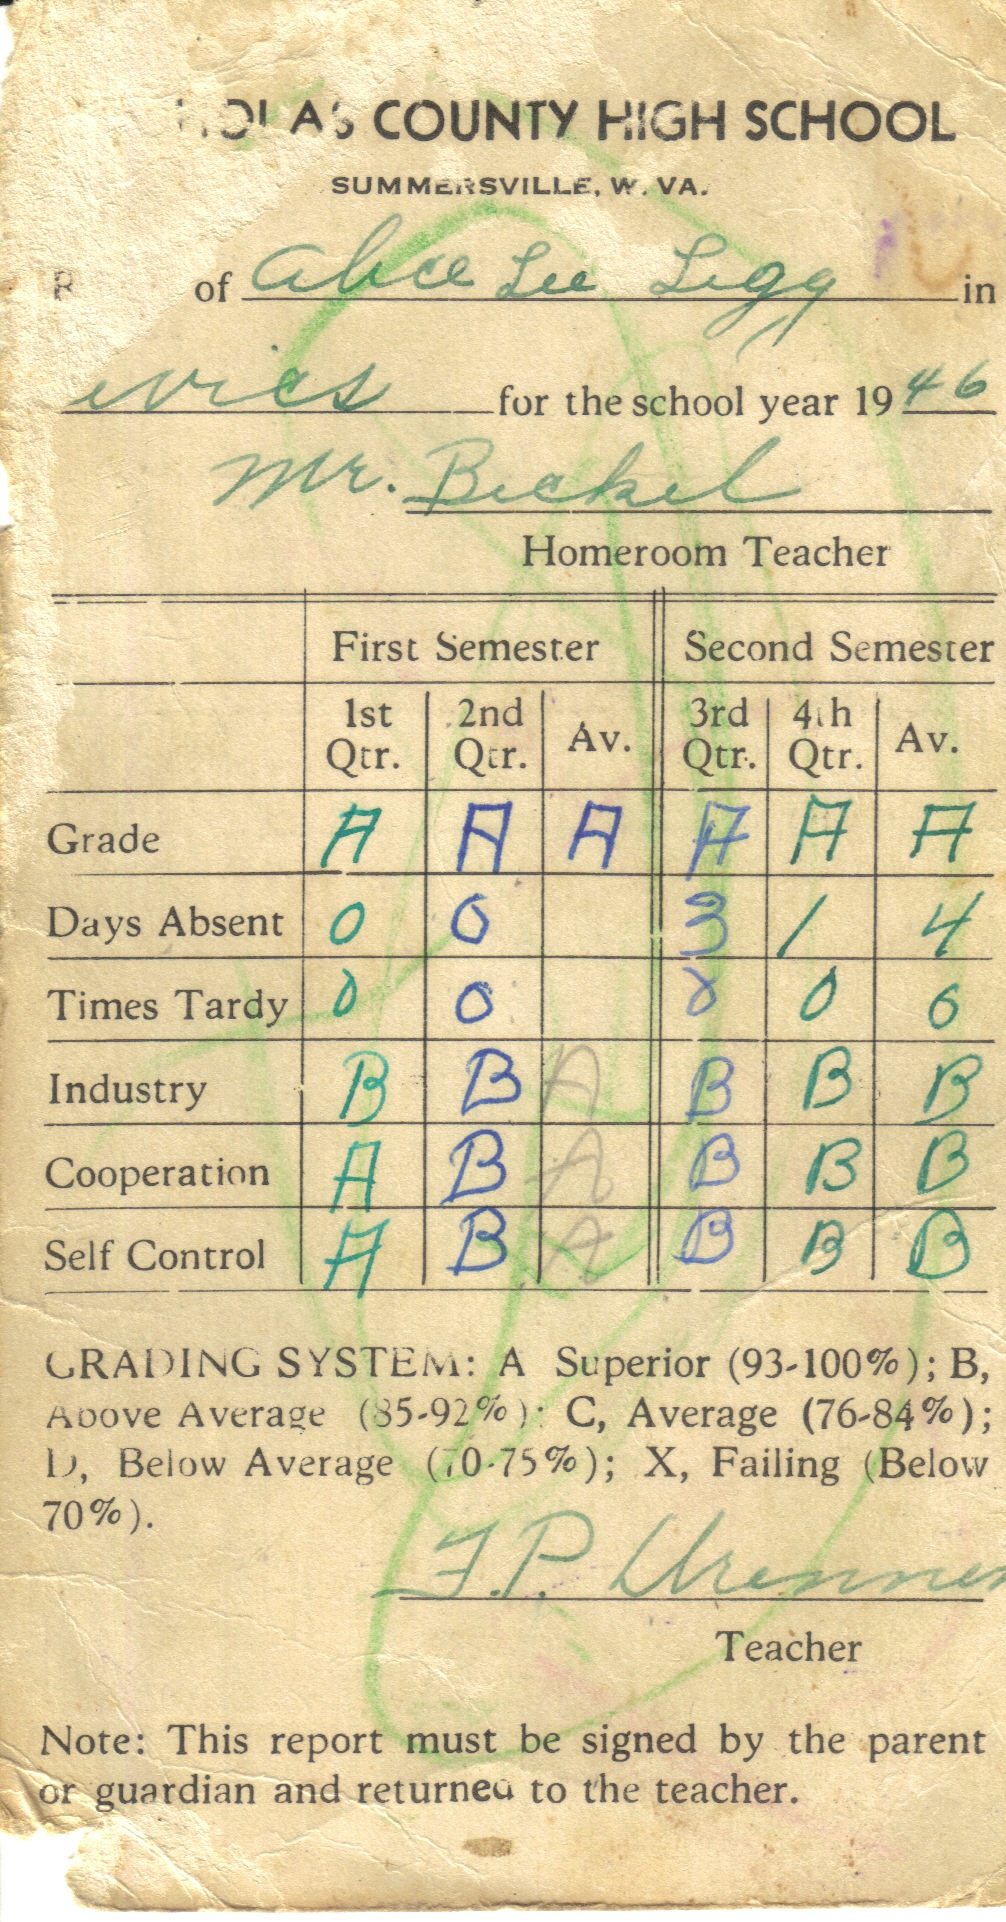 HOLAS COUNTY HIGH SCHOOL
SUMMERSVILLE, W. VA.
R of Alice Lee Legg in
ivics for the school year 19 46
Mr. Bickel
Homeroom Teacher
First Semester Second Semester
1st Qtr. 2nd Qtr. Av. 3rd Qtr. 4th Qtr. Av.
Grade A A A A A A
Days Absent 0 0 3 1 4
Times Tardy 0 0 0 0 0
Industry B B A B B B
Cooperation A B A B B B
Self Control A B A B B B
GRADING SYSTEM: A Superior (93-100%); B,
Above Average (85-92%); C, Average (76-84%);
D, Below Average (70-75%); X, Failing (Below
70%).
F.P.
Teacher
Note: This report must be signed by the parent
or guardian and returned to the teacher.